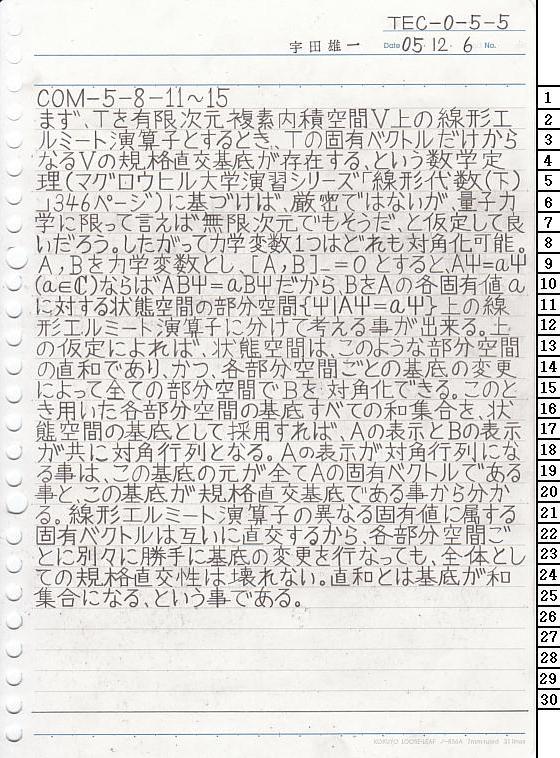 TEC-0-5-5
宇田雄一 Date 05・12・6 No.
COM-5-8-11〜15
まず、Tを有限次元複素内積空間V上の線形エ
ルミート演算子とするとき、Tの固有ベクトルだけから
なるVの規格直交基底が存在する、という数学定
理(マグロウヒル大学演習シリーズ「線形代数(下)
」346ページ)に基づけば、厳密ではないが、量子力
学に限って言えば無限次元でもそうだ、と仮定して良
いだろう。したがって力学変数1つはどれも対角化可能。
A,Bを力学変数とし、[A,B]₋=0とすると、AΨ=aΨ
(a∈ℂ)ならばABΨ=aBΨだから、BをAの各固有値a
に対する状態空間の部分空間{Ψ|AΨ=aΨ}上の線
形エルミート演算子に分けて考える事が出来る。上
の仮定によれば、状態空間は、このような部分空間
の直和であり、かつ、各部分空間ごとの基底の変更
によって全ての部分空間でBを対角化できる。このと
き用いた各部分空間の基底すべての和集合を、状
態空間の基底として採用すれば、Aの表示とBの表示
が共に対角行列となる。Aの表示が対角行列にな
る事は、この基底の元が全てAの固有ベクトルである
事と、この基底が規格直交基底である事から分か
る。線形エルミート演算子の異なる固有値に属する
固有ベクトルは互いに直交するから、各部分空間ご
とに別々に勝手に基底の変更を行なっても、全体とし
ての規格直交性は壊れない。直和とは基底が和
集合になる、という事である。
1
2
3
4
5
6
7
8
9
10
11
12
13
14
15
16
17
18
19
20
21
22
23
24
25
26
27
28
29
30
KOKUYO LOOSE-LEAF ノ-836A 7mm ruled 31 lines